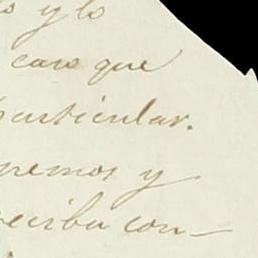 y lo
caso que
particular.
nemos y
reciba con-